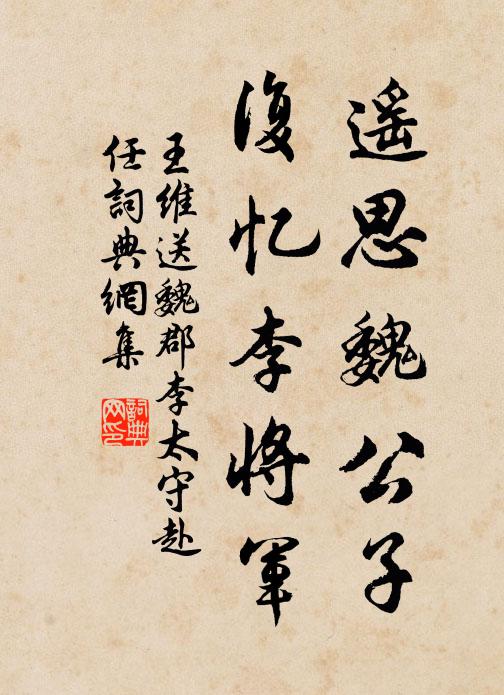 遥思魏公子
復忆李将軍
王維送魏郡李太守赴
任詞典網集
詞典
网印